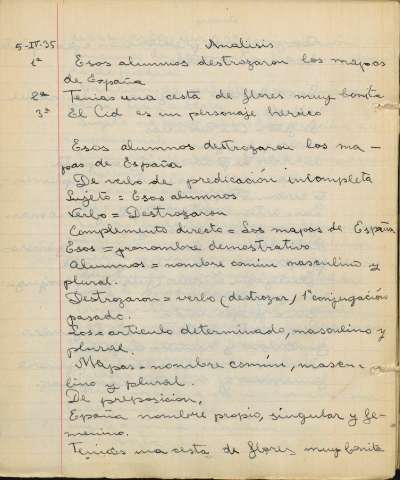 5-IV-35 Analisis
1ª Esos alumnos destrozaron los mapas
de España
2ª Tenias una cesta de flores muy bonita
3ª El Cid es un personaje heroico
Esos alumnos destrozaron los ma-
pas de España
De verbo de predicación incompleta
Sujeto = Esos alumnos
Verbo = Destrozaron
Complemento directo = Los mapas de España
Esos = pronombre demostrativo
Alumnos = nombre común masculino y
plural.
Destrozaron = verbo (destrozar) 1ª conjugación
pasado.
Los = articulo determinado, masculino y
plural.
Mapas = nombre común, mascu-
lino y plural.
De preposicion,
España nombre propio, singular y fe-
menino.
Tenias una cesta de flores muy bonita